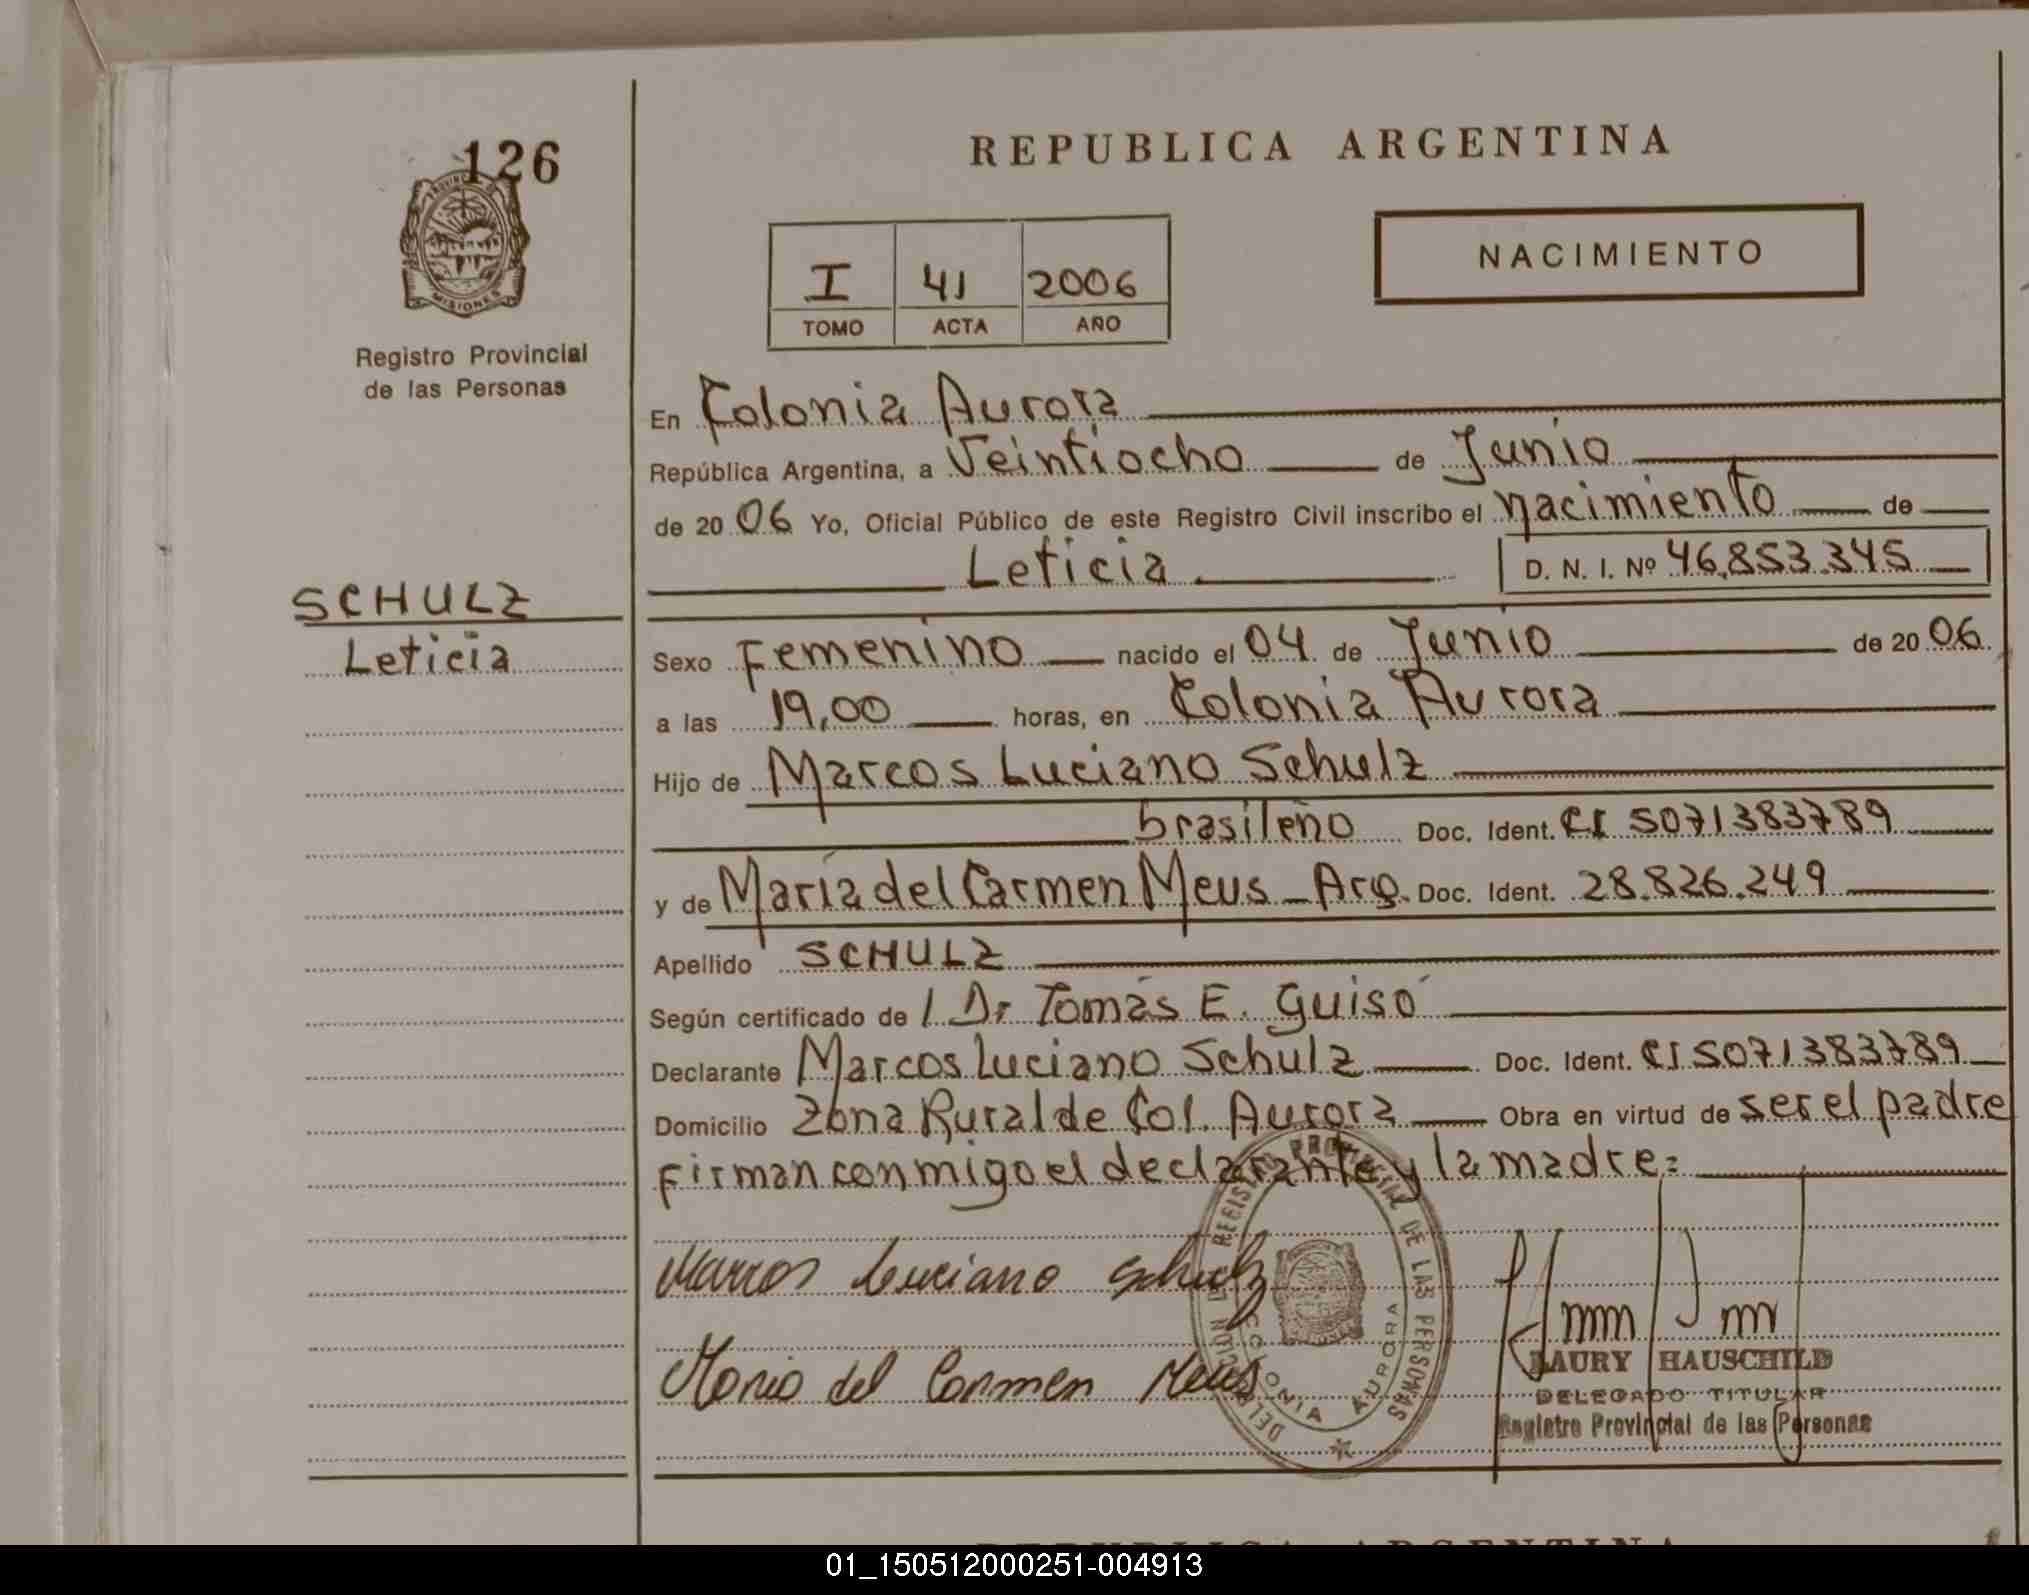 126
PROVINCIA DE
MISIONES
Registro Provincial
de las Personas
SCHULZ
Leticia
REPUBLICA ARGENTINA
I 41 2006
TOMO ACTA AÑO
NACIMIENTO
En Colonia Aurora
República Argentina, a Veintiocho de Junio
de 2006 Yo, Oficial Público de este Registro Civil inscribo el nacimiento de
Leticia D. N. I. Nº 46.853.345
Sexo Femenino nacido el 04 de Junio de 2006
a las 19,00 horas, en Colonia Aurora
Hijo de Marcos Luciano Schulz
brasileño Doc. Ident. CI 5071383789
y de María del Carmen Meus - Arg. Doc. Ident. 28.826.249
Apellido SCHULZ
Según certificado de l Dr Tomás E. Guisó
Declarante Marcos Luciano Schulz Doc. Ident. CI 5071383789
Domicilio Zona Rural de Col. Aurora Obra en virtud de ser el padre
Firman conmigo el declarante y la madre:
Marcos Luciano Schulz
Maria del Carmen Meus
DELEGACION DEL REGISTRO PROVINCIAL DE LAS PERSONAS
COLONIA AURORA
LAURY HAUSCHILD
DELEGADO TITULAR
Registro Provincial de las Personas
REPUBLICA ARGENTINA
01_150512000251-004913